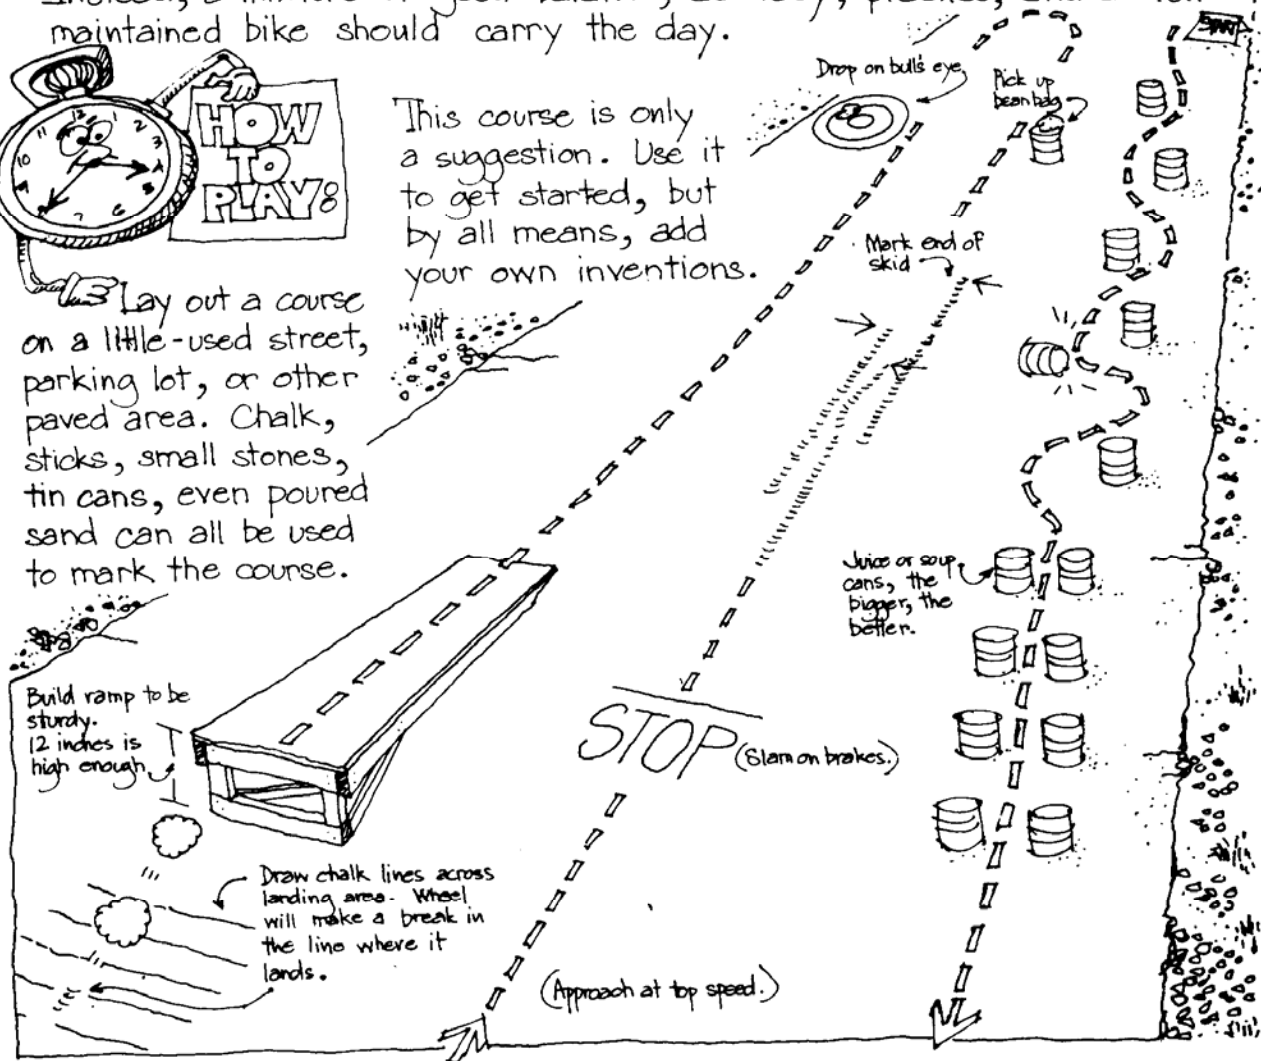 maintained bike should carry the day.
HOW
TO
PLAY:
This course is only
a suggestion. Use it
to get started, but
by all means, add
your own inventions.
Lay out a course
on a little-used street,
parking lot, or other
paved area. Chalk,
sticks, small stones,
tin cans, even poured
sand can all be used
to mark the course.
START
Drop on bull's eye
Pick up
bean bag
Mark end of
skid
Juice or soup
cans, the
bigger, the
better.
Build ramp to be
sturdy.
12 inches is
high enough
STOP (Slam on brakes.)
Draw chalk lines across
landing area. Wheel
will make a break in
the line where it
lands.
(Approach at top speed.)